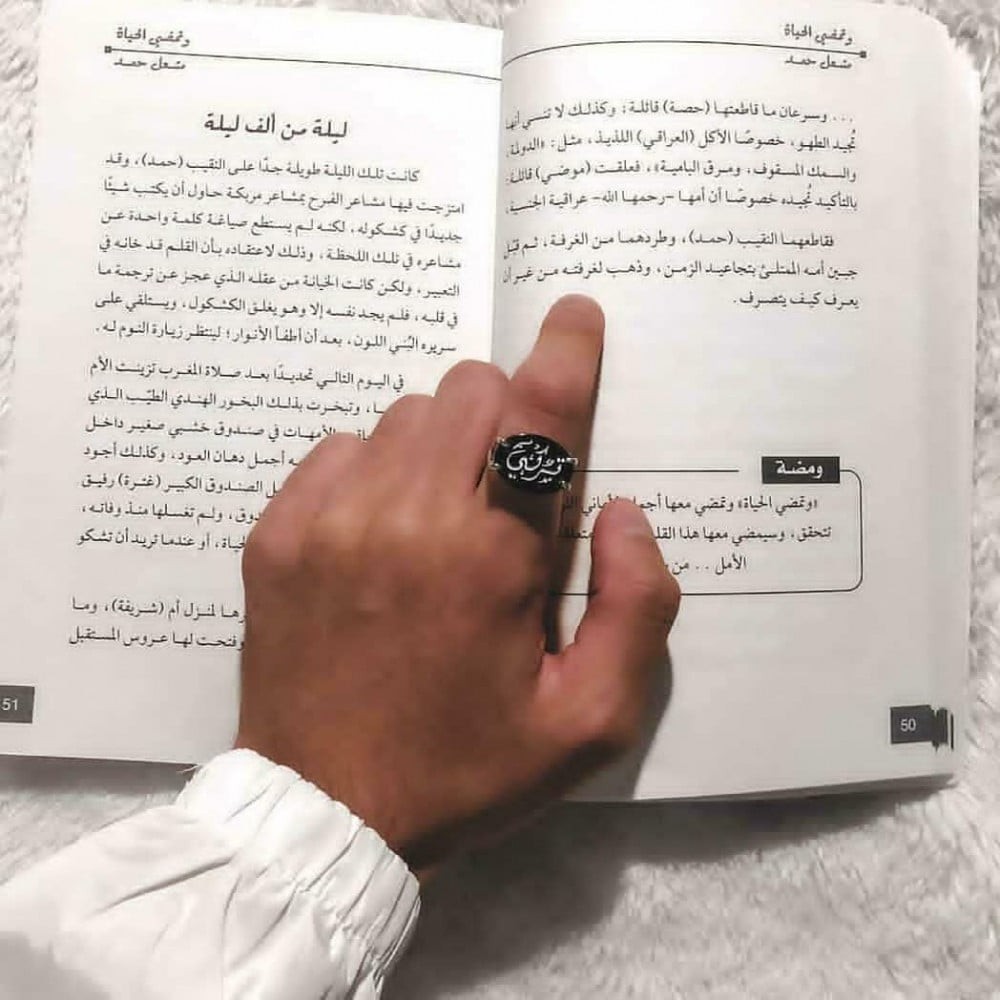 وتمضي الحياة
مشعل حمد
... وسرعان ما قاطعتها (حصة) قائلة: وكذلك لا تنسي أنها
تُجيد الطهو، خصوصًا الأكل (العراقي) اللذيذ، مثل: «الدولمة،
والسمك المسقوف، ومرق البامية»، فعلقت (موضي) قائلة:
بالتأكيد تُجيده خصوصًا أن أمها -رحمها الله- عراقية الجنسية.
فقاطعهما النقيب (حمد)، وطردهما من الغرفة، ثم قبل
جبين أمه الممتلئ بتجاعيد الزمن، وذهب لغرفته من غير أن
يعرف كيف يتصرف.
ومضة
«وتمضي الحياة» وتمضي معها أجمل
تتحقق، وسيمضي معها هذا
الأمل .. من
50
وتمضي الحياة
مشعل حمد
ليلة من ألف ليلة
كانت تلك الليلة طويلة جدًا على النقيب (حمد)، وقد
امتزجت فيها مشاعر الفرح بمشاعر مربكة حاول أن يكتب شيئًا
جديدًا في كشكوله، لكنه لم يستطع صياغة كلمة واحدة عن
مشاعره في تلك اللحظة، وذلك لاعتقاده بأن القلم قد خانه في
التعبير، ولكن كانت الخيانة من عقله الذي عجز عن ترجمة ما
في قلبه، فلم يجد نفسه إلا وهو يغلق الكشكول، ويستلقي على
سريره البُني اللون، بعد أن أطفأ الأنوار؛ لينتظر زيارة النوم له.
في اليوم التالي تحديدًا بعد صلاة المغرب تزينت الأم
وتبخرت بذلك البخور الهندي الطيّب الذي
الأمهات في صندوق خشبي صغير داخل
أجمل دهان العود، وكذلك أجود
الصندوق الكبير (غترة) رفيق
ولم تغسلها منذ وفاته،
أو عندما تريد أن تشكو
لمنزل أم (شريفة)، وما
وفتحت لها عروس المستقبل
51